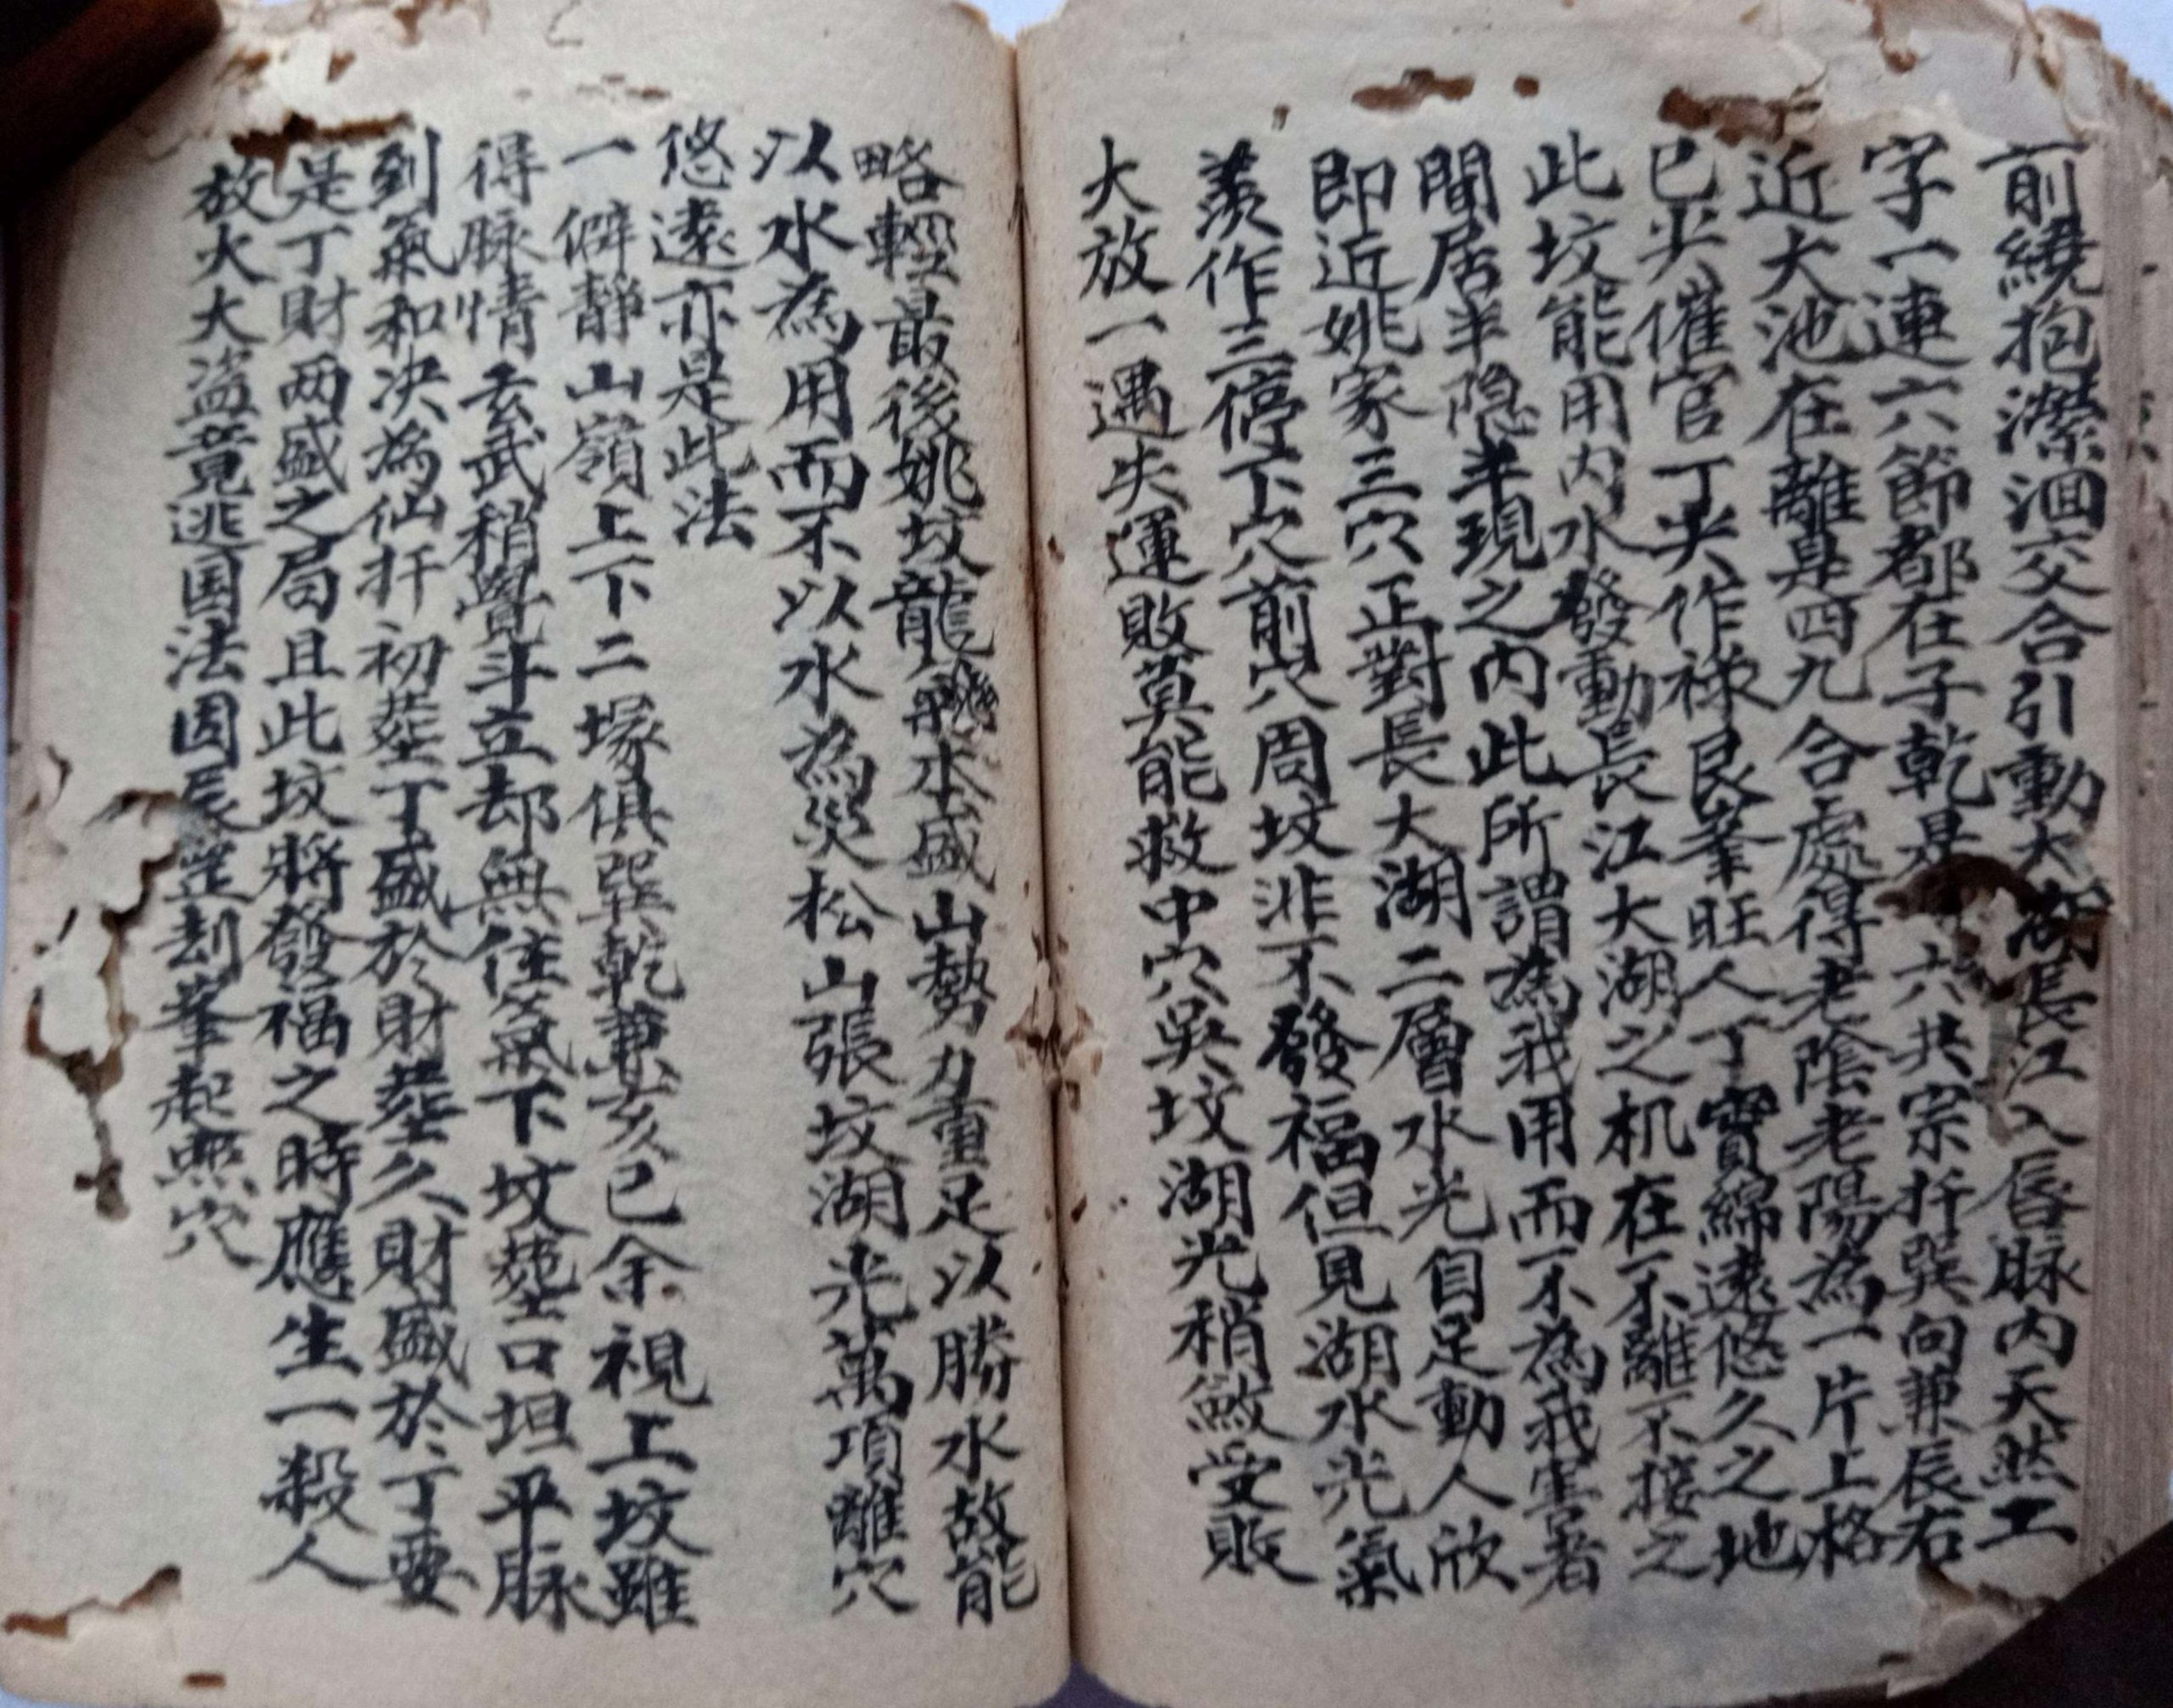 前繞抱瀠洄交合引動大湖長江入唇脉内天然工
字一連六節都在子乾是六共宗扦巽向兼辰右
近大池在離是四九合處得老陰老陽為一片上格
已尖催官丁尖作禄艮峯旺人丁寶綿遠悠久之地
此坟能用内水發動長江大湖之机在不離不接之
間居半隐半現之内此所謂為我用而不為我害者
即近姚家三穴正對長大湖二層水光自足動人欣
羨作三停下穴前穴周坟非不發福但見湖水光氣
大放一遇失運敗莫能救中穴吳坟湖光稍斂受敗
略輕最後姚坟龍水盛山勢力重足以勝水故能
以水為用而不以水為災松山張坟湖光萬項離穴
悠遠亦是此法
一僻静山嶺上下二塚俱巽乾兼亥已余視上坟雖
得脉情玄武稍覺斗立却無住氣下坟塟口坦平脉
到氣和决為仙扦初塟丁盛於財塟久財盛於丁要
是丁財两盛之局且此坟將發福之時應生一殺人
放火大盗竟逃国法因辰峯起照穴